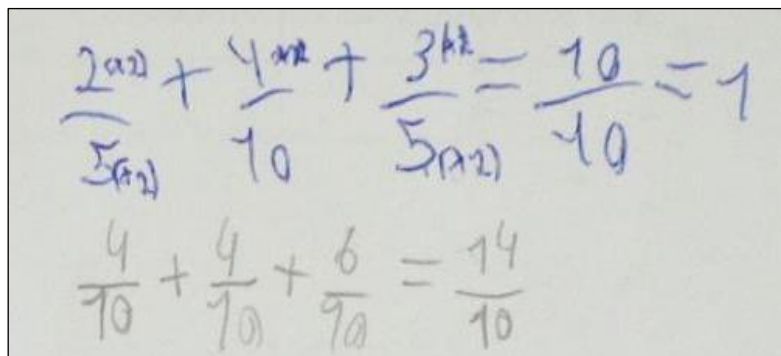 2(×2)/5(×2) + 4/10 + 3(×2)/5(×2) = 10/10 = 1
4/10 + 4/10 + 6/10 = 14/10